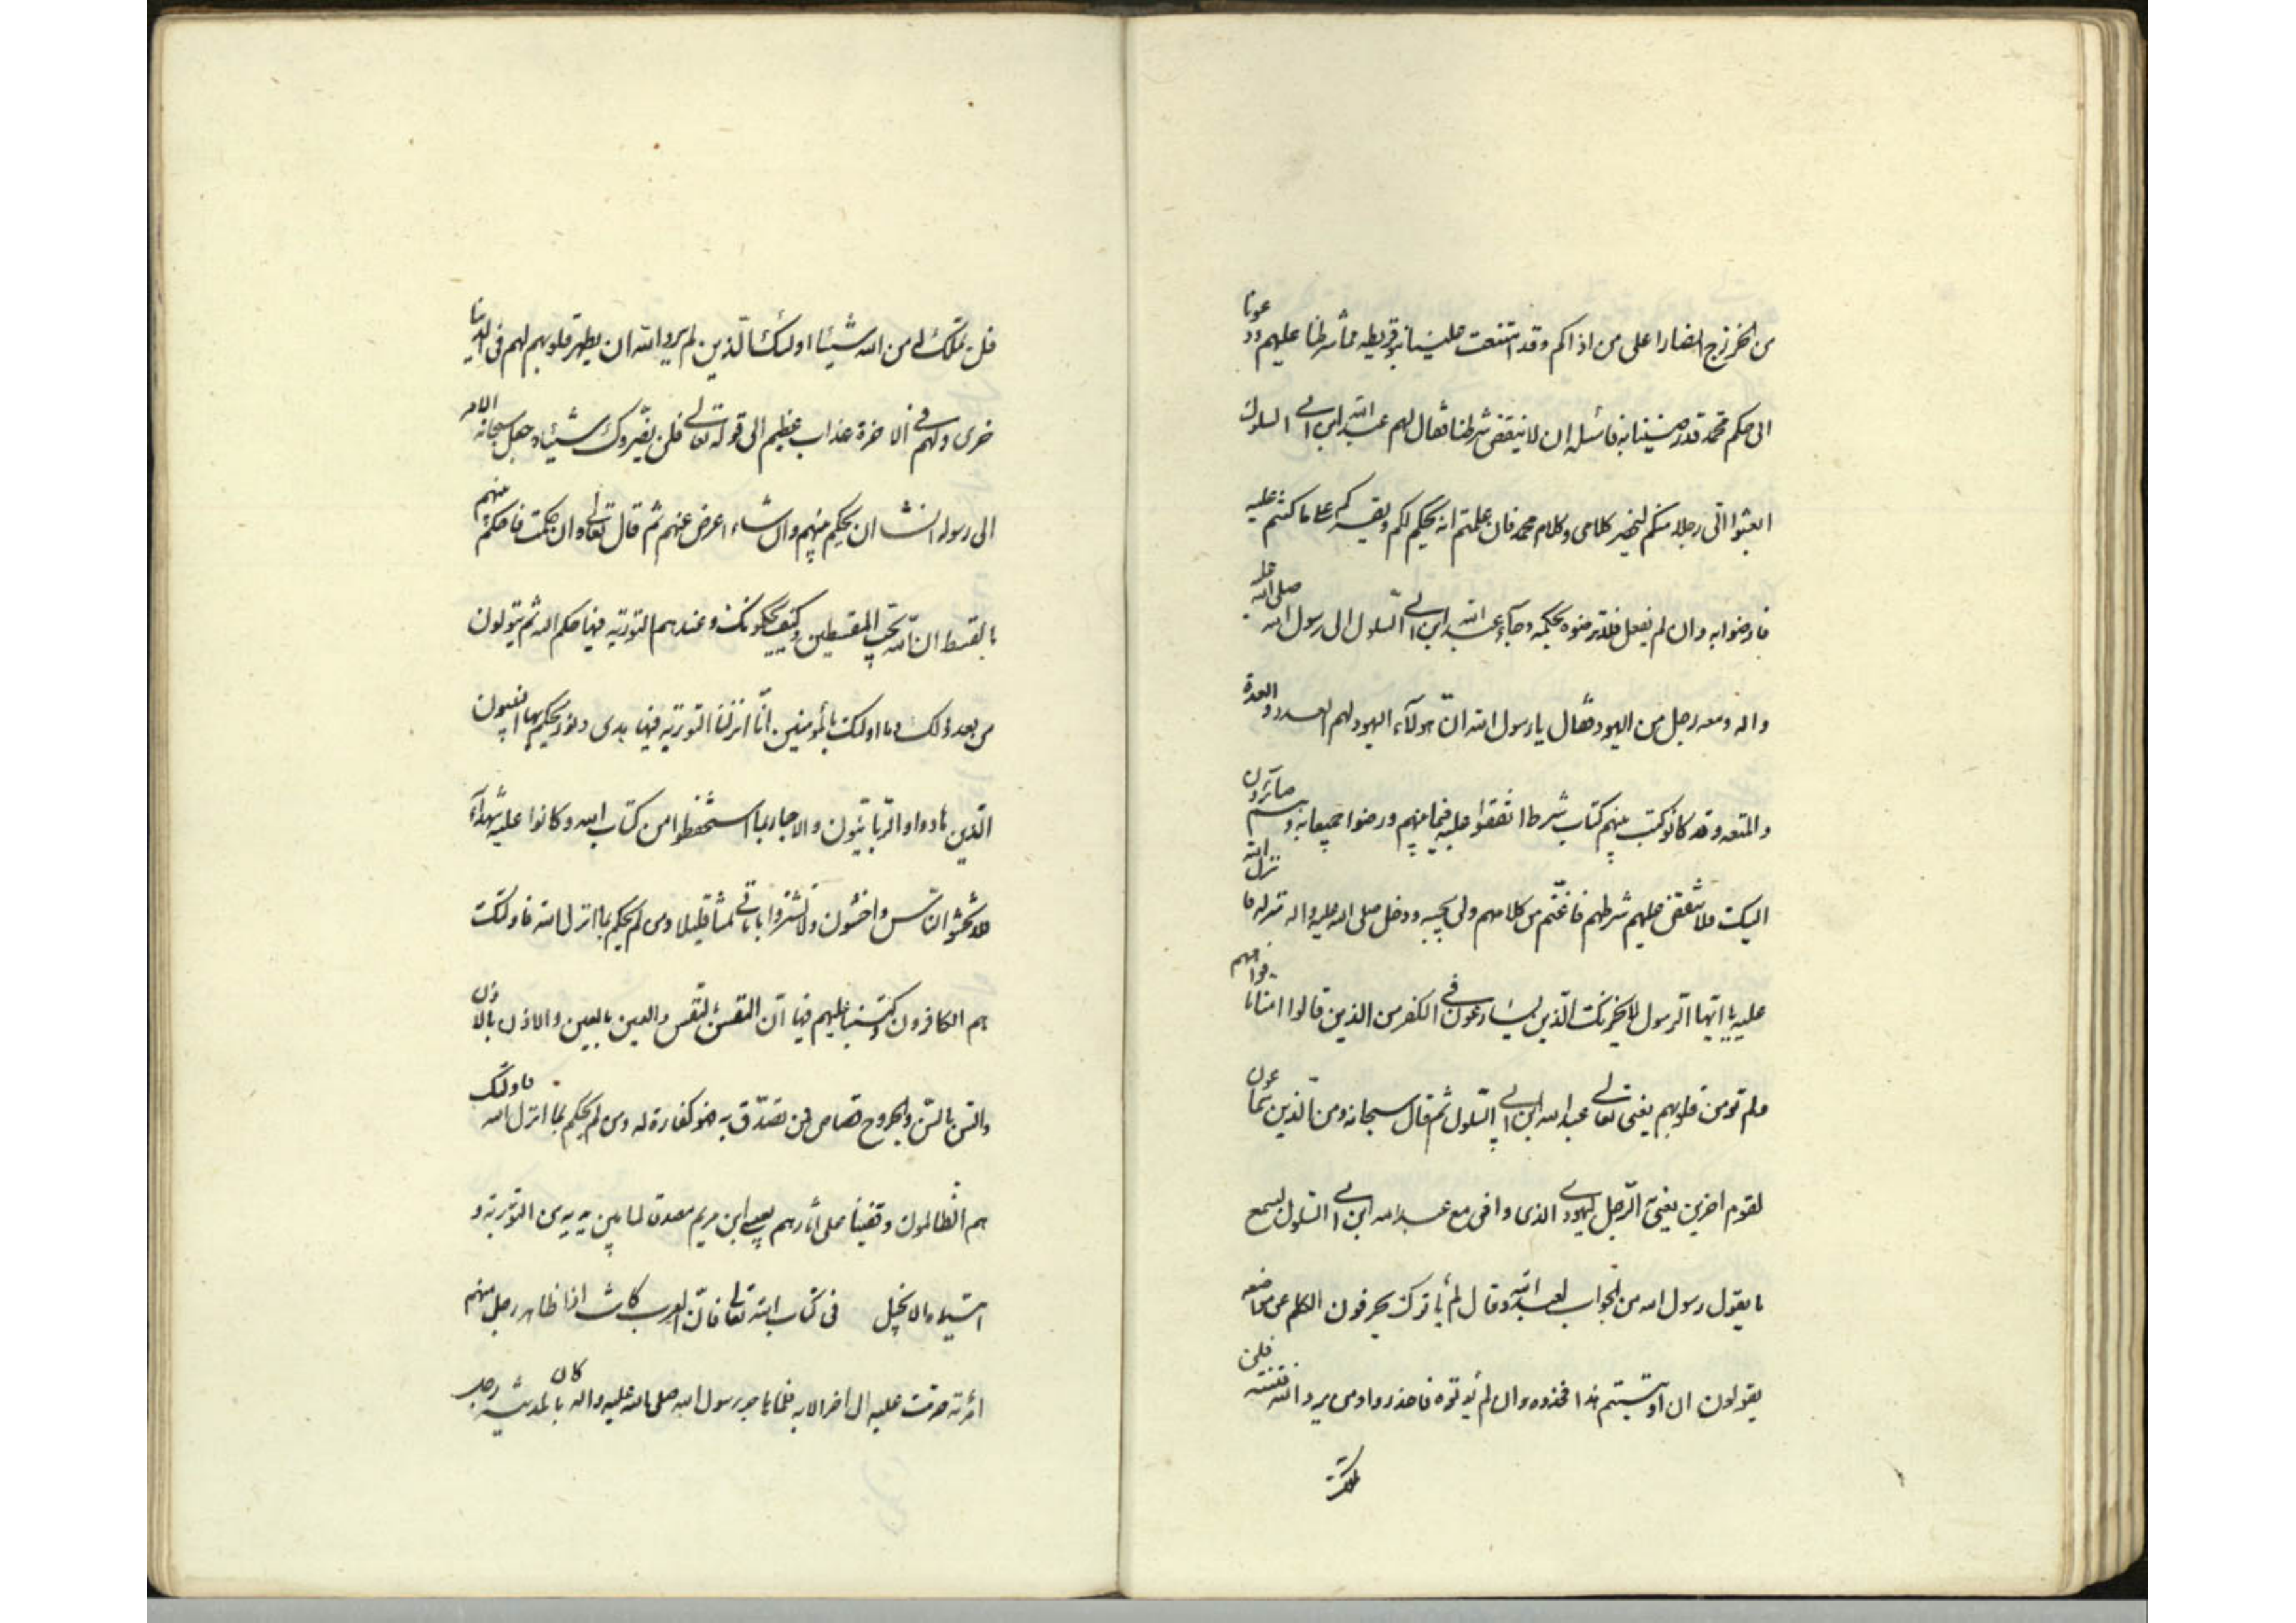 من الخزرج انصارا على من اذاكم وقد امتنعت علينا بنو قريظه مما شرطنا عليهم ودعونا
الى حكم محمد قد رضينا به فاسئله ان لا ينقض شرطنا فقال لهم عبد الله ابن ابي السلول
ابعثوا الي رجلا منكم ليحضر كلامى وكلام محمد فان علمتم انه يحكم لكم ويقركم على ما كنتم عليه
فارضوا به وان لم يفعل فلا ترضوه بحكمه وجآء عبد الله ابن ابي السلول الى رسول الله صلى الله عليه
واله ومعه رجل من اليهود فقال يا رسول الله انّ هولآء اليهود لهم العدد والعدة
والمنعه وقد كانو كتب بينهم كتاب شرط اتفقوا عليه فيما بينهم ورضوا جميعا به وهم صائرون
اليك فلا تنقض عليهم شرطهم فاغتم من كلامهم ولم يجبه ودخل صلى الله عليه واله منزله فانزل الله
عليه يا ايّها الرسول لا يحزنك الّذين يسارعون في الكفر من الذين قالوا امنا بافواههم
ولم تومن قلوبهم يعنى تعالى عبد الله ابن ابي السّلول ثم قال سبحانه ومن الّذين سماعون
لقوم اخرين يعنى به الرّجل اليهودي الذى وافى مع عبد الله ابن ابي السّلول ليسمع
ما يقول رسول الله من الجواب لعبد الله وقال لم يأتوك يحرفون الكلم عن مواضعه
يقولون ان اوتيتم هذا فخذوه وان لم تؤتوه فاحذروا ومن يرد الله فتنته فلن
تملك
فلن تملك له من الله شيئا اولئك الّذين لم يرد الله ان يطهر قلوبهم لهم فى الدنيا
خزى ولهم في الاخرة عذاب عظيم الى قوله تعالى فلن يضروك شيئا وجعل سبحانه الامر
الى رسوله انشاء ان يحكم بينهم وان شاء اعرض عنهم ثم قال تعالى وان حكمت فاحكم بينهم
بالقسط ان الله يحب المقسطين وكيف يحكمونك وعندهم التورية فيها حكم الله ثم يتولون
من بعد ذلك وما اولئك بالمؤمنين انّا انزلنا التورية فيها هدى ونور يحكم بها النبيون
الّذين هادوا والربانيّون والاحبار بما استحفظوا من كتاب الله وكانوا عليه شهدآء
فلا تخشوا النّاس واخشون ولا تشتروا باياتي ثمنا قليلا ومن لم يحكم بما انزل الله فاولئك
هم الكافرون وكتبنا عليهم فيها انّ النّفس بالنّفس والعين بالعين والاذن بالاذن
والسّن بالسّن والجروح قصاص فمن تصدّق به فهو كفارة له ومن لم يحكم بما انزل الله فاولئك
هم الظالمون وقفينا على اثارهم بعيسى ابن مريم مصدقا لما بين يديه من التورية و
اتيناه الانجيل فى كتاب الله تعالى فانّ العرب كانت اذا ظاهر رجل منهم
امرأته حرمت عليه الى اخر الابد فلما هاجر رسول الله صلى الله عليه واله كان بالمدينة رجل